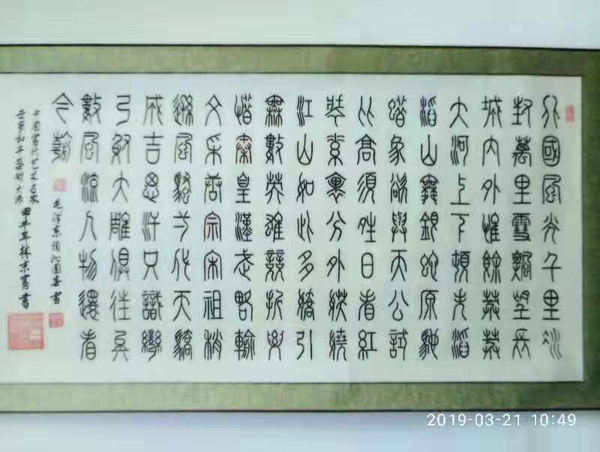 北國風光千里冰
封萬里雪飄望長
城內外惟餘莽莽
大河上下頓失滔
滔山舞銀蛇原馳
蠟象欲與天公試
比高須晴日看紅
裝素裹分外妖嬈
江山如此多嬌引
無數英雄競折腰
惜秦皇漢武略輸
文采唐宗宋祖稍
遜風騷一代天驕
成吉思汗只識彎
弓射大雕俱往矣
數風流人物還看
今朝
毛澤東詞沁園春雪
甲午年林書
2019-03-21 10:49